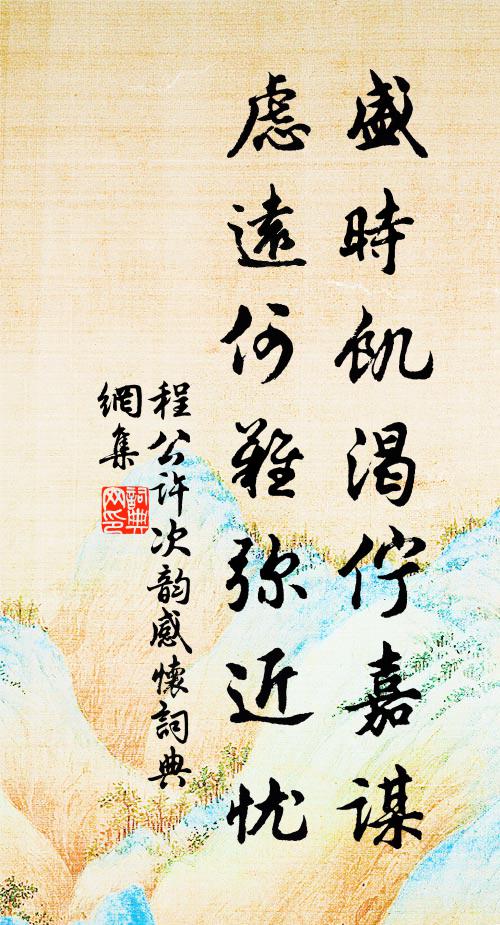 盛時飢渴佇嘉謀
慮遠何難弥近忧
程公许次韵感懷詞典
網集
詞典
网印